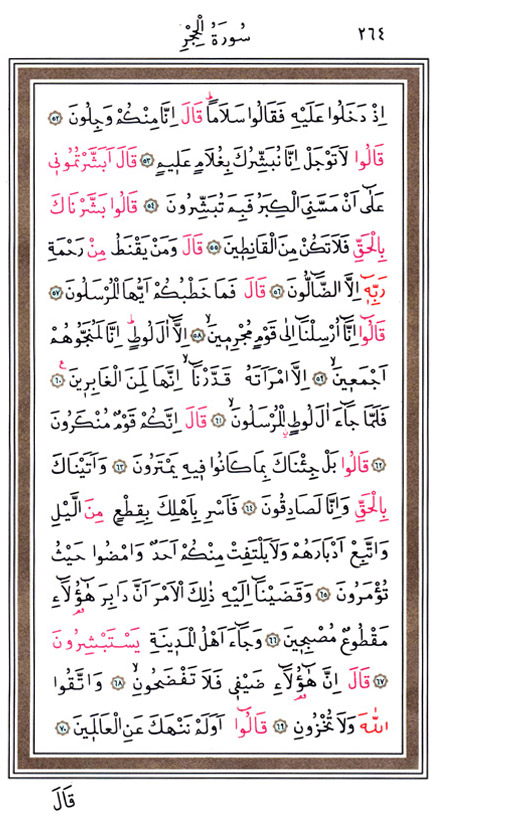 ٢٦٤
سُورَةُ الْحِجْرِ
اِذْ دَخَلُوا عَلَيْهِ فَقَالُوا سَلَامًاۜ قَالَ اِنَّا مِنْكُمْ وَجِلُونَ ﴿٥٢﴾
قَالُوا لَا تَوْجَلْ اِنَّا نُبَشِّرُكَ بِغُلَامٍ عَل۪يمٍ ﴿٥٣﴾ قَالَ اَبَشَّرْتُمُون۪ي
عَلٰٓى اَنْ مَسَّنِيَ الْكِبَرُ فَبِمَ تُبَشِّرُونَ ﴿٥٤﴾ قَالُوا بَشَّرْنَاكَ
بِالْحَقِّ فَلَا تَكُنْ مِنَ الْقَانِط۪ينَ ﴿٥٥﴾ قَالَ وَمَنْ يَقْنَطُ مِنْ رَحْمَةِ
رَبِّه۪ٓ اِلَّا الضَّٓالُّونَ ﴿٥٦﴾ قَالَ فَمَا خَطْبُكُمْ اَيُّهَا الْمُرْسَلُونَ ﴿٥٧﴾
قَالُٓوا اِنَّٓا اُرْسِلْنَٓا اِلٰى قَوْمٍ مُجْرِم۪ينَۙ ﴿٥٨﴾ اِلَّٓا اٰلَ لُوطٍۜ اِنَّا لَمُنَجُّوهُمْ
اَجْمَع۪ينَۙ ﴿٥٩﴾ اِلَّا امْرَاَتَهُ قَدَّرْنَٓاۙ اِنَّهَا لَمِنَ الْغَابِر۪ينَ۟ ﴿٦٠﴾
فَلَمَّا جَٓاءَ اٰلَ لُوطٍۨ الْمُرْسَلُونَۙ ﴿٦١﴾ قَالَ اِنَّكُمْ قَوْمٌ مُنْكَرُونَ
﴿٦٢﴾ قَالُوا بَلْ جِئْنَاكَ بِمَا كَانُوا ف۪يهِ يَمْتَرُونَ ﴿٦٣﴾ وَاَتَيْنَاكَ
بِالْحَقِّ وَاِنَّا لَصَادِقُونَ ﴿٦٤﴾ فَاَسْرِ بِاَهْلِكَ بِقِطْعٍ مِنَ الَّيْلِ
وَاتَّبِعْ اَدْبَارَهُمْ وَلَا يَلْتَفِتْ مِنْكُمْ اَحَدٌ وَامْضُوا حَيْثُ
تُؤْمَرُونَ ﴿٦٥﴾ وَقَضَيْنَٓا اِلَيْهِ ذٰلِكَ الْاَمْرَ اَنَّ دَابِرَ هٰٓؤُ۬لَٓاءِ
مَقْطُوعٌ مُصْبِح۪ينَ ﴿٦٦﴾ وَجَٓاءَ اَهْلُ الْمَد۪ينَةِ يَسْتَبْشِرُونَ
﴿٦٧﴾ قَالَ اِنَّ هٰٓؤُ۬لَٓاءِ ضَيْف۪ي فَلَا تَفْضَحُونِۙ ﴿٦٨﴾ وَاتَّقُوا
اللّٰهَ وَلَا تُخْزُونِ ﴿٦٩﴾ قَالُٓوا اَوَلَمْ نَنْهَكَ عَنِ الْعَالَم۪ينَ ﴿٧٠﴾
قَالَ